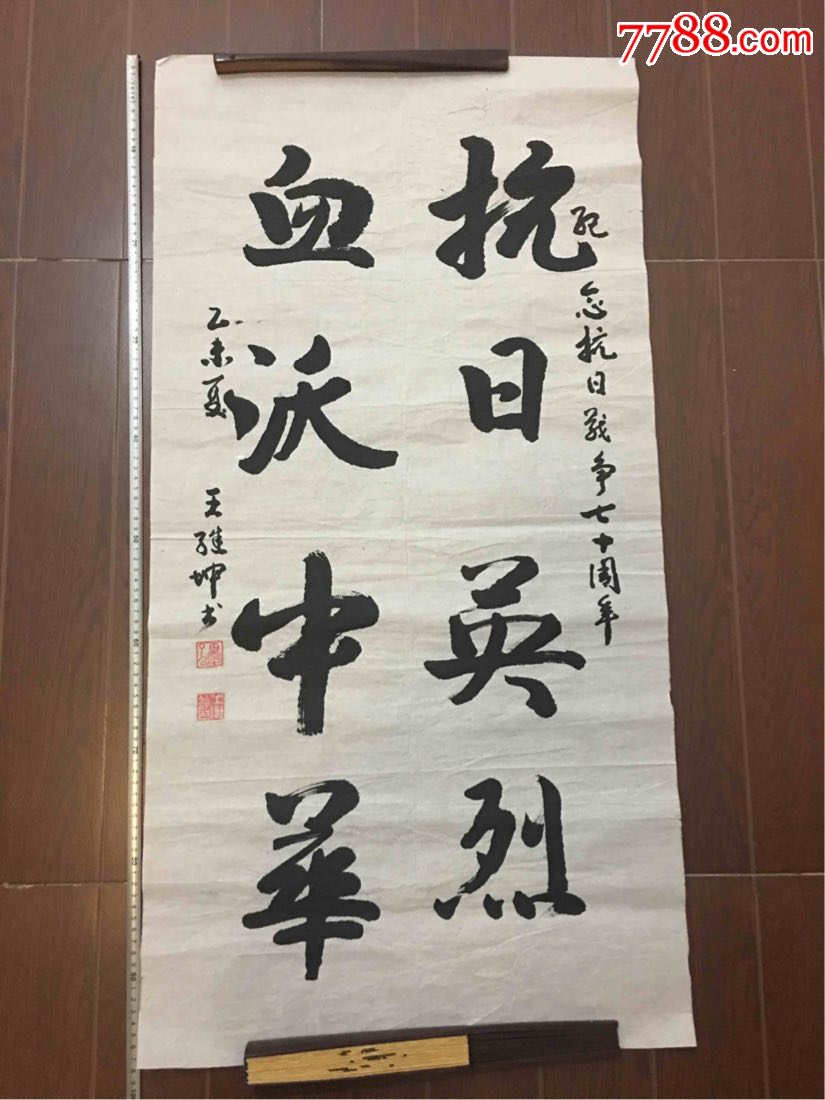 7788.com
纪念抗日战争七十周年
抗日英烈
血沃中華
乙未夏 王維坤书